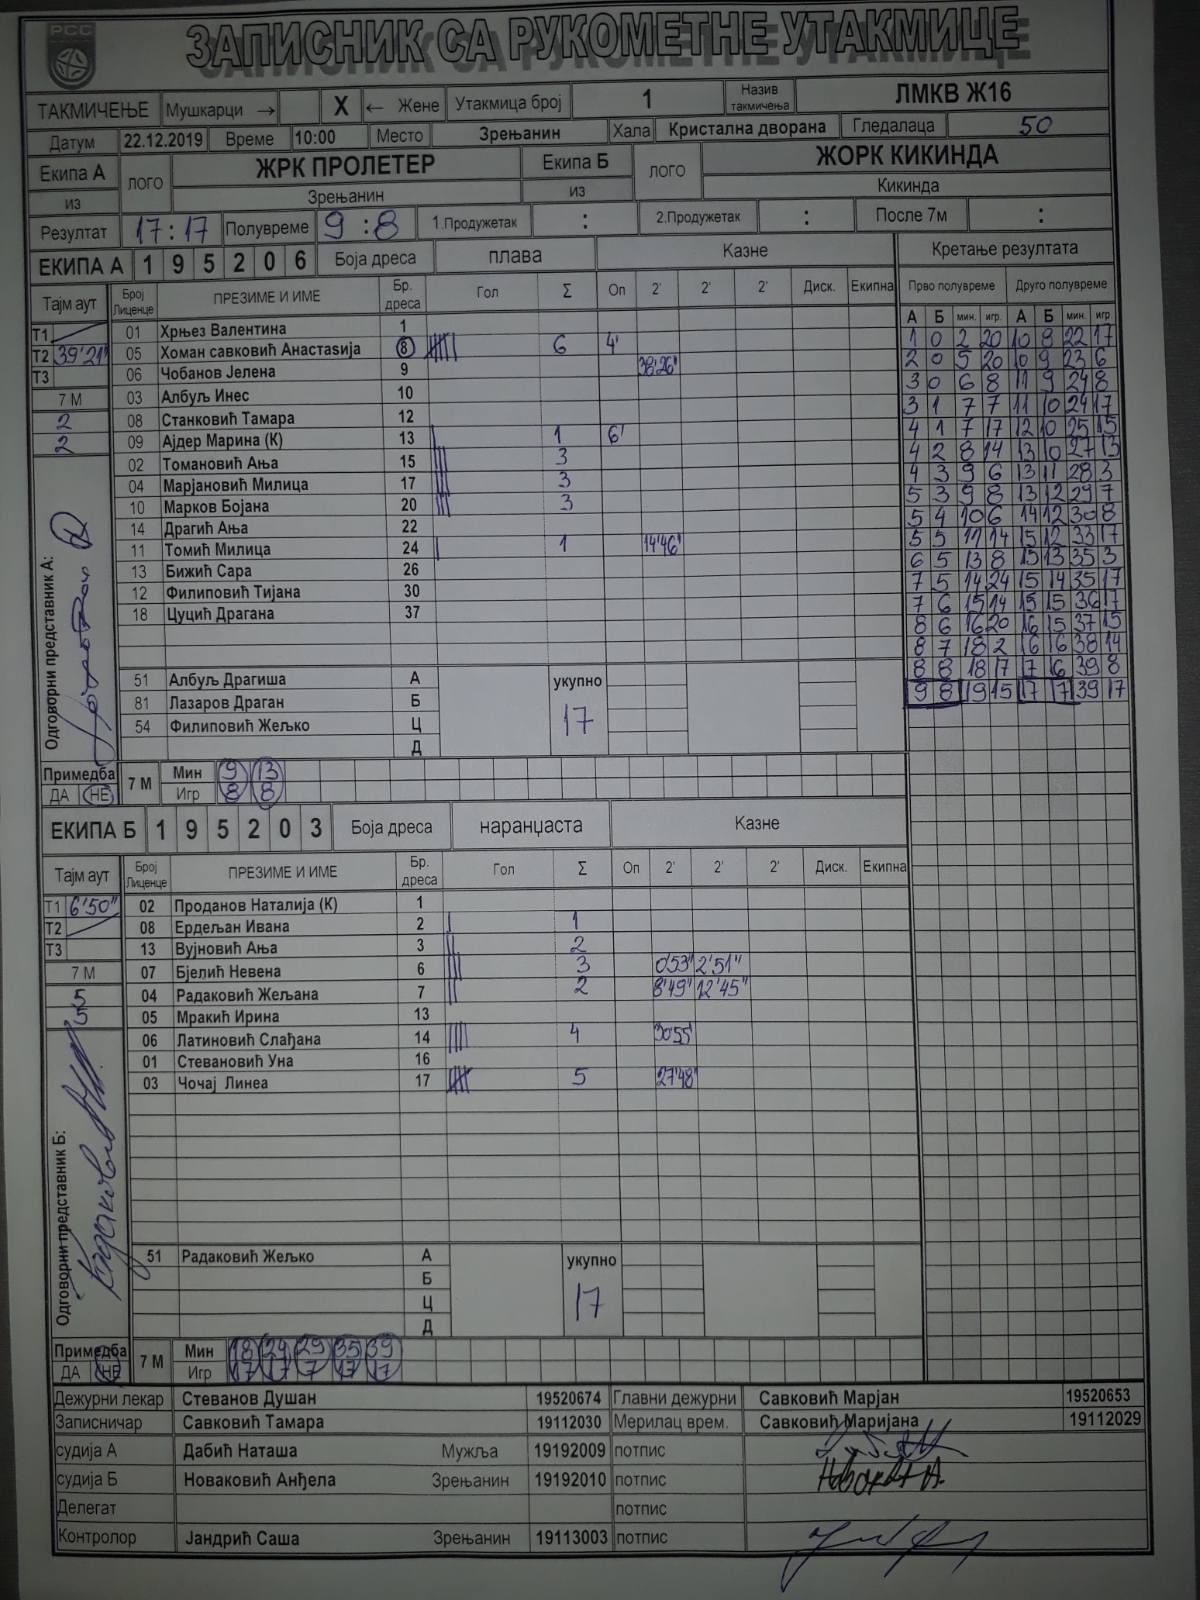 РСС
ЗАПИСНИК СА РУКОМЕТНЕ УТАКМИЦЕ
ТАКМИЧЕЊЕ Мушкарци → X ← Жене Утакмица број 1 Назив такмичења ЛМКВ Ж16
Датум 22.12.2019 Време 10:00 Место Зрењанин Хала Кристална дворана Гледалаца 50
Екипа А ЛОГО ЖРК ПРОЛЕТЕР Екипа Б ЛОГО ЖОРК КИКИНДА
из Зрењанин из Кикинда
Резултат 17:17 Полувреме 9:8 1.Продужетак : 2.Продужетак : После 7м :
ЕКИПА А 1 9 5 2 0 6 Боја дреса плава Казне Кретање резултата
Тајм аут Број Лиценце ПРЕЗИМЕ И ИМЕ Бр. дреса Гол Σ Оп 2' 2' 2' Диск. Екипна Прво полувреме Друго полувреме
А Б мин. игр. А Б мин. игр
Т1 01 Хрњез Валентина 1 1 0 2 20 10 8 22 17
Т2 39'21" 05 Хоман савковић Анастасија 8 6 4' 2 0 5 20 10 9 23 6
Т3 06 Чобанов Јелена 9 38'26" 3 0 6 8 11 9 24 8
7 М 03 Албуљ Инес 10 3 1 7 7 11 10 24 17
2 08 Станковић Тамара 12 4 1 7 17 12 10 25 15
2 09 Ајдер Марина (К) 13 1 6' 4 2 8 14 13 10 27 13
02 Томановић Ања 15 3 4 3 9 6 13 11 28 3
04 Марјановић Милица 17 3 5 3 9 8 13 12 29 7
10 Марков Бојана 20 3 5 4 10 6 14 12 30 8
14 Драгић Ања 22 5 5 11 14 15 12 33 17
11 Томић Милица 24 1 14'46" 6 5 13 8 15 13 35 3
13 Бижић Сара 26 7 5 14 24 15 14 35 17
12 Филиповић Тијана 30 7 6 15 14 15 15 36 17
18 Цуцић Драгана 37 8 6 16 20 16 15 37 15
8 7 18 2 16 16 38 14
8 8 18 17 17 16 39 8
9 8 19 15 17 17 39 17
Одговорни представник А:
51 Албуљ Драгиша А укупно
81 Лазаров Драган Б 17
54 Филиповић Жељко Ц
Д
Примедба 7 М Мин 9 13
ДА НЕ Игр 8 8
ЕКИПА Б 1 9 5 2 0 3 Боја дреса наранџаста Казне
Тајм аут Број Лиценце ПРЕЗИМЕ И ИМЕ Бр. дреса Гол Σ Оп 2' 2' 2' Диск. Екипна
Т1 6'50" 02 Проданов Наталија (К) 1
Т2 08 Ердељан Ивана 2 1
Т3 13 Вујновић Ања 3 2
7 М 07 Бјелић Невена 6 3 0'53" 2'51"
5 04 Радаковић Жељана 7 2 8'49" 12'45"
5 05 Мракић Ирина 13
06 Латиновић Слађана 14 4 30'55"
01 Стевановић Уна 16
03 Чочај Линеа 17 5 27'48"
Одговорни представник Б:
51 Радаковић Жељко А укупно
Б 17
Ц
Д
Примедба 7 М Мин 18 24 29 35 39
ДА НЕ Игр 17 17 7 17 17
Дежурни лекар Стеванов Душан 19520674 Главни дежурни Савковић Марјан 19520653
Записничар Савковић Тамара 19112030 Мерилац врем. Савковић Маријана 19112029
судија А Дабић Наташа Мужља 19192009 потпис
судија Б Новаковић Анђела Зрењанин 19192010 потпис
Делегат потпис
Контролор Јандрић Саша Зрењанин 19113003 потпис